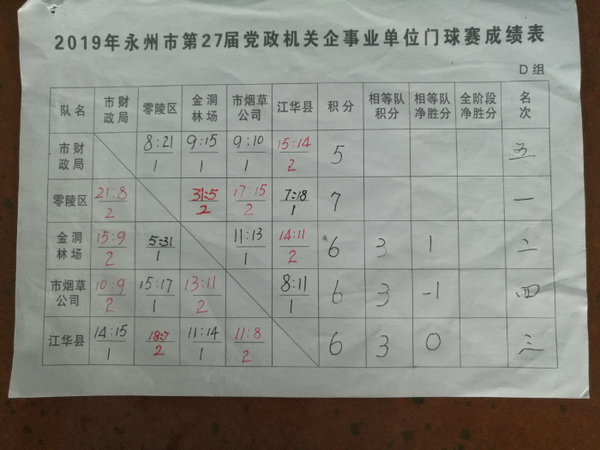 2019年永州市第27届党政机关企事业单位门球赛成绩表
D组
队名 市财政局 零陵区 金洞林场 市烟草公司 江华县 积分 相等队积分 相等队净胜分 全阶段净胜分 名次
市财政局 8:21/1 9:15/1 9:10/1 15:14/2 5 五
零陵区 21:8/2 31:5/2 17:15/2 7:18/1 7 一
金洞林场 15:9/2 5:31/1 11:13/1 14:11/2 6 3 1 二
市烟草公司 10:9/2 15:17/1 13:11/2 8:11/1 6 3 -1 四
江华县 14:15/1 18:7/2 11:14/1 11:8/2 6 3 0 三